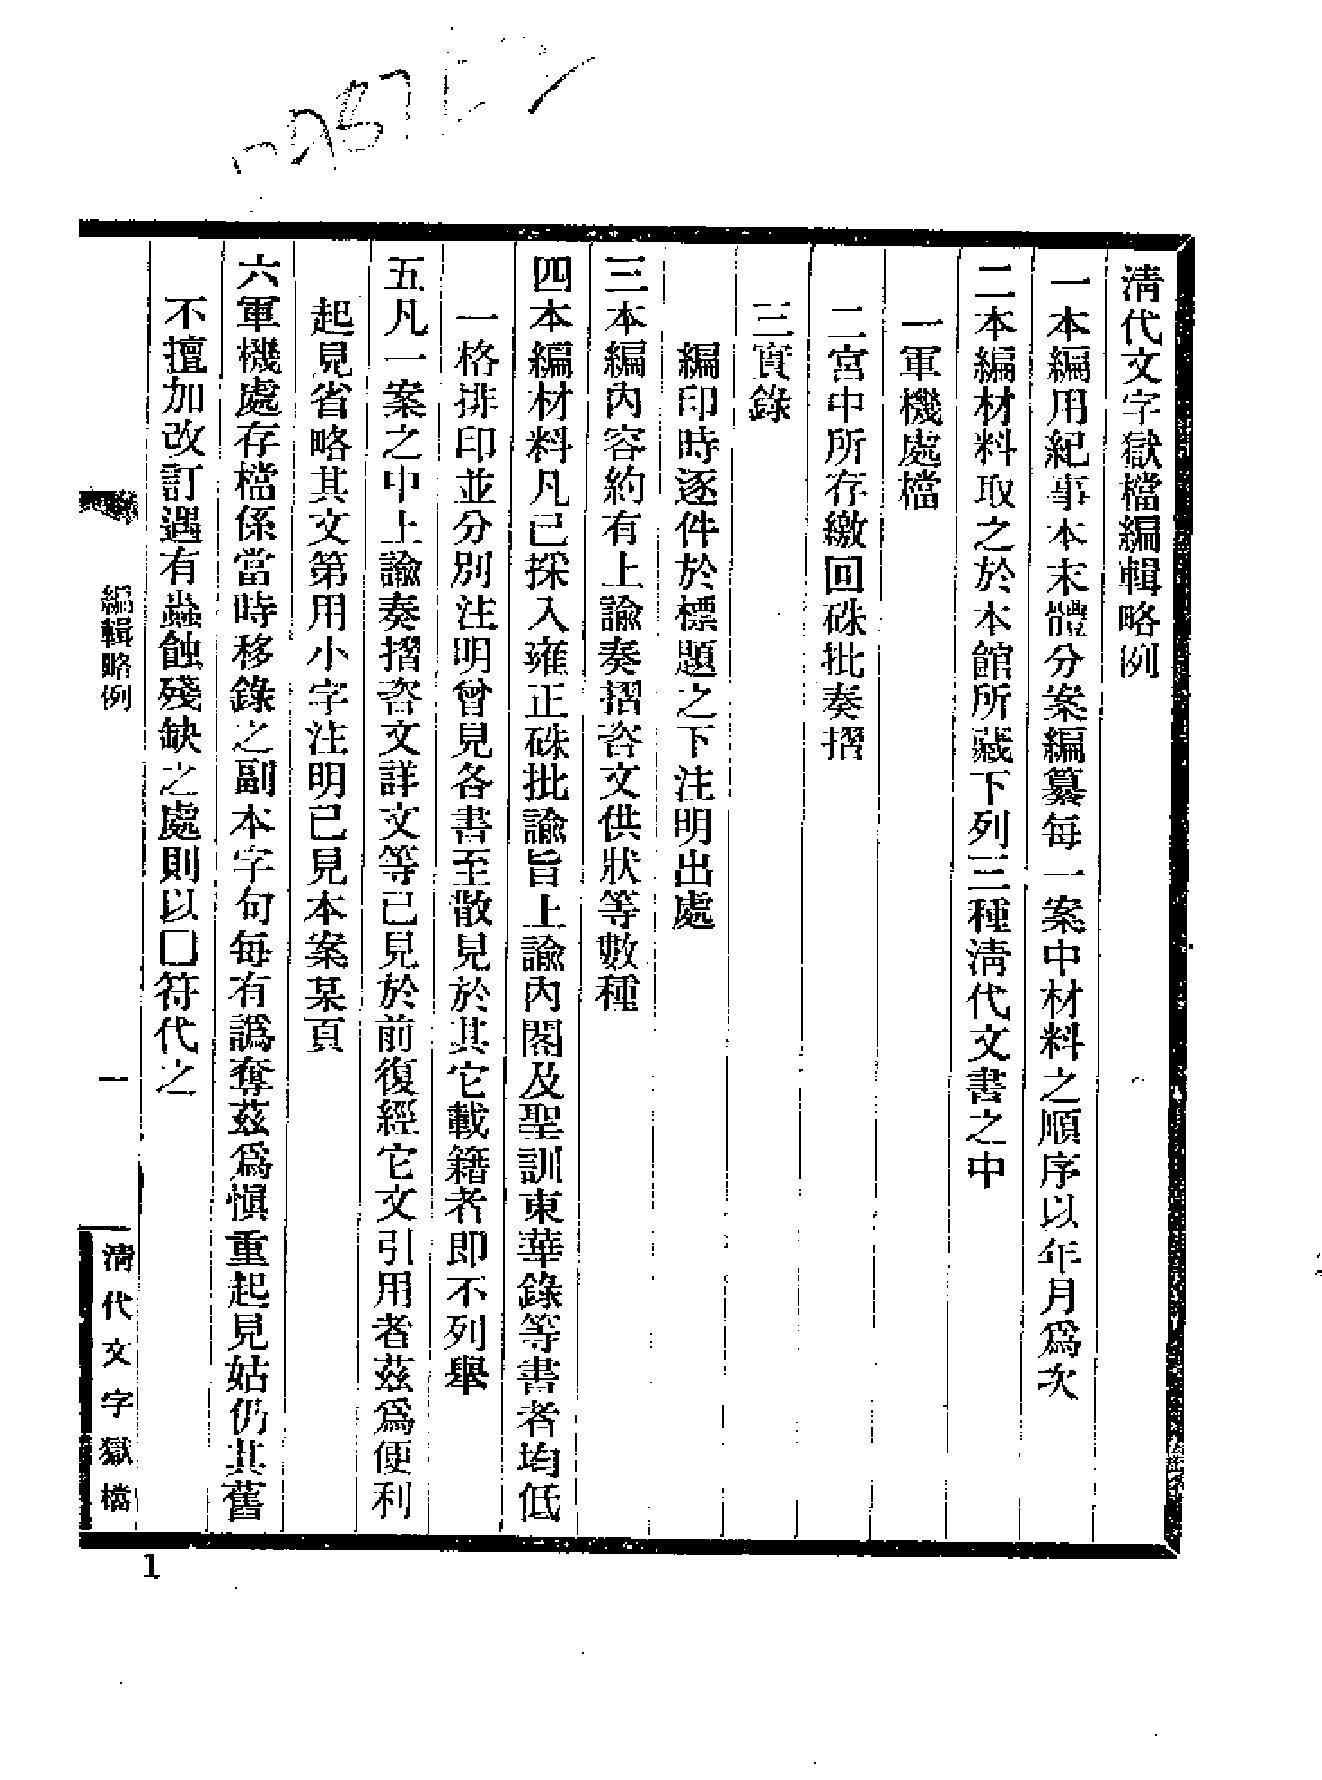 清代文字獄檔編輯略例
一本編用紀事本末體分案編纂每一案中材料之順序以年月爲次
二本編材料取之於本館所藏下列三種清代文書之中
一軍機處檔
二宮中所存繳回硃批奏摺
三實錄
編印時逐件於標題之下注明出處
三本編內容約有上諭奏摺咨文供狀等數種
四本編材料凡已採入雍正硃批諭旨上諭內閣及聖訓東華錄等書者均低
一格排印並分別注明曾見各書至散見於其它載籍者即不列舉
五凡一案之中上諭奏摺咨文詳文等已見於前復經它文引用者茲爲便利
起見省略其文第用小字注明已見本案某頁
六軍機處存檔係當時移錄之副本字句每有譌奪茲爲愼重起見姑仍其舊
不擅加改訂遇有蟲蝕殘缺之處則以□符代之
編輯略例
一
清代文字獄檔
1